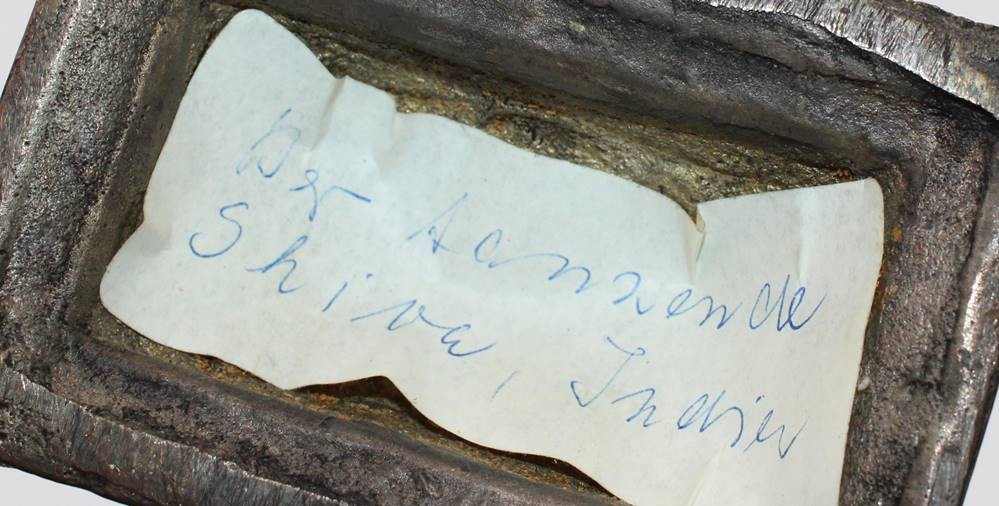 Der tanzende
Shiva, Indien